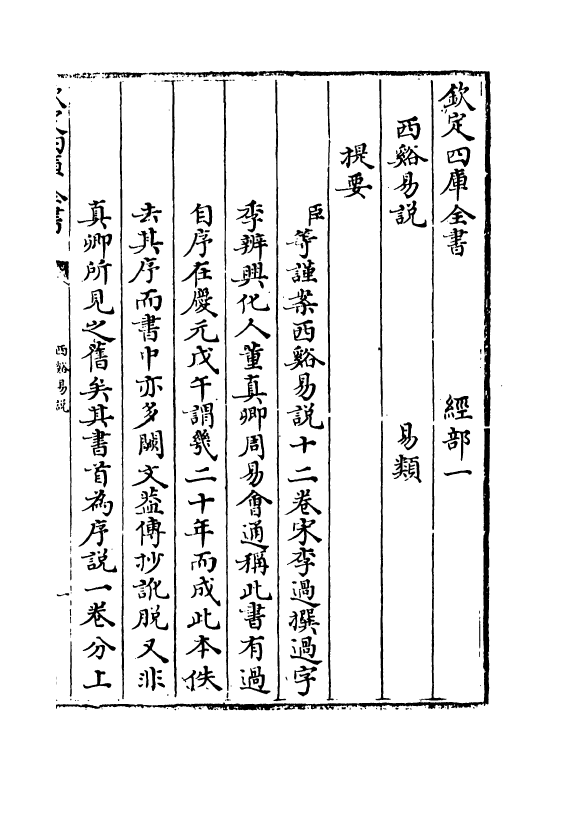 欽定四庫全書 經部一
西谿易說 易類
提要
臣等謹案西谿易說十二卷宋李過撰過字
季辨興化人董真卿周易會通稱此書有過
自序在慶元戊午謂幾二十年而成此本佚
去其序而書中亦多闕文蓋傳抄訛脫又非
真卿所見之舊矣其書首為序說一卷分上
欽定四庫全書 西谿易說 一